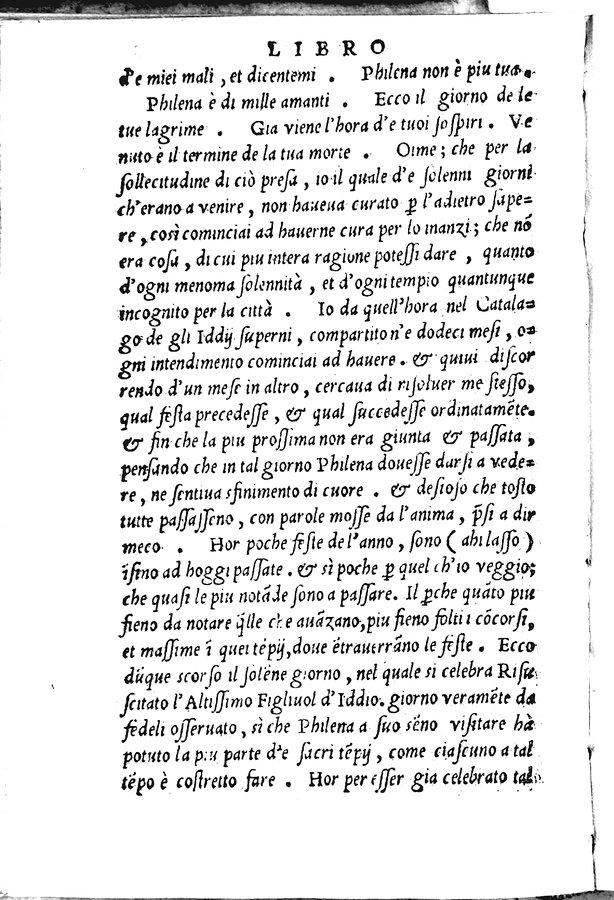 LIBRO
de miei mali, et dicentemi . Philena non è piu tua.
Philena è di mille amanti . Ecco il giorno de le
tue lagrime . Gia viene l'hora d'e tuoi sospiri . Ve
nuto è il termine de la tua morte . Oime ; che per la
sollecitudine di ciò presa , io il quale d'e solenni giorni
ch'erano a venire , non haueua curato ꝑ l'adietro sape=
re , così cominciai ad hauerne cura per lo inanzi ; che nõ
era cosa , di cui piu intera ragione potessi dare , quanto
d'ogni menoma solennità , et d'ogni tempio quantunque
incognito per la città . Io da quell'hora nel Catala=
go de gli Iddÿ superni , compartito n'e dodeci mesi , o=
gni intendimento cominciai ad hauere . & quiui discor
rendo d'un mese in altro , cercaua di risoluer me stesso,
qual festa precedesse , & qual succedesse ordinatamẽte.
& fin che la piu prossima non era giunta & passata ,
pensando che in tal giorno Philena douesse darsi a vede=
re , ne sentiua sfinimento di cuore . & desioso che tosto
tutte passasseno , con parole mosse da l'anima , p̃si a dir
meco . Hor poche feste de l'anno , sono ( ahi lasso )
ĩsino ad hoggi passate . & sì poche ꝑ quel ch'io veggio;
che quasi le piu notãde sono a passare. Il ꝑche quãto piu
fieno da notare q̃lle che auãzano, piu fieno folti i cõcorsi,
et massime ĩ quei tẽpÿ, doue ẽtrauerrãno le feste . Ecco
dũque scorso il solẽne giorno , nel quale si celebra Risu
scitato l'Altissimo Figliuol d'Iddio. giorno veramẽte da
fedeli osseruato , sì che Philena a suo sẽno visitare hà
potuto la piu parte d'e sacri tẽpÿ , come ciascuno a tal
tẽpo è costretto fare . Hor per esser gia celebrato tal